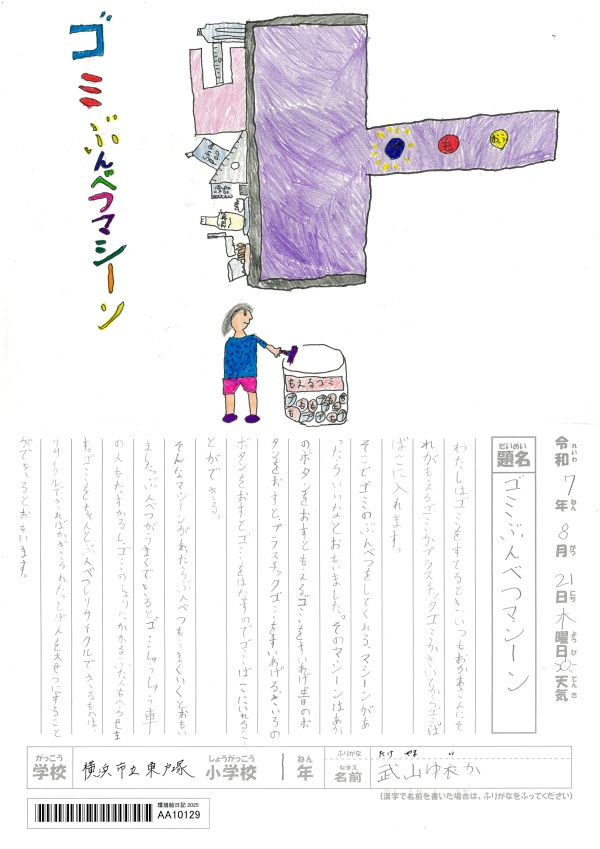 ゴミぶんべつマシーン
もえるゴミ
令和7年8月21日木曜日 天気
題名 ゴミぶんべつマシーン
わたしはゴミをすてるときいつもおかあさんにそ
れがもえるゴミかプラスチックゴミかきいてからゴミば
ばこに入れます。
そこでゴミのぶんべつをしてくれる、マシーンがあ
ったらいいなとおもいました。そのマシーンはあか
のボタンをおすともえるゴミをすいあげ青のボ
タンをおすと、プラスチックゴミをすいあげる。きいろの
ボタンをおすとゴミをはなすのでゴミばこにいれるこ
とができる。
そんなマシーンがあったら、ぶんべつもうまくいくとおもい
ました。ぶんべつがうまくできるとゴミしゅうしゅう車
の人もたすかるし、ゴミのしょりにかかるふたんもへらせま
す。ゴミをちゃんとぶんべつしリサイクルできるものは、
リサイクルできればかぎられたしげんを大せつにすること
ができるとおもいます。
がっこう 学校 横浜市立東戸塚 しょうがっこう 小学校 1 ねん 年
ふりがな たけやま
なまえ 名前 武山ゆれか
(漢字で名前を書いた場合は、ふりがなをふってください)
環境絵日記 2025
AA10129